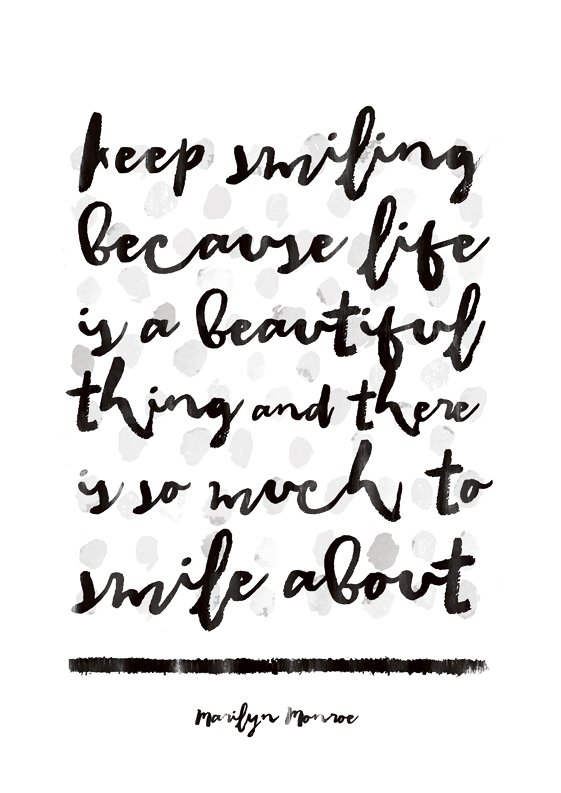 keep smiling
because life
is a beautiful
thing and there
is so much to
smile about
Marilyn Monroe